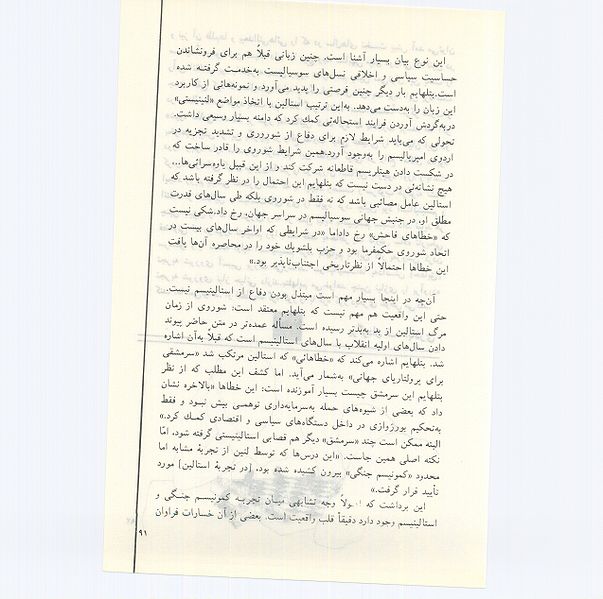 این نوع بیان بسیار آشنا است. چنین زبانی قبلاً هم برای فرونشاندن
حساسیت سیاسی و اخلاقی نسل‌های سوسیالیست به‌خدمت گرفته شده
است. بتلهایم بار دیگر چنین فرصتی را پدید می‌آورد و نمونه‌هائی از کاربرد
این زبان را به‌دست می‌دهد. به‌این ترتیب استالین با اتخاذ مواضع «لنینیستی»
در به‌گردش آوردن فرایند استحاله‌ئی کمك کرد که دامنه بسیار وسیعی داشت.
تحولی که می‌باید شرایط لازم برای دفاع از شوروری و تشدید تجزیه در
اردوی امپریالیسم را به‌وجود آورد. همین شرایط شوروی را قادر ساخت که
در شکست دادن هیتلریسم قاطعانه شرکت کند و از این قبیل یاوه‌سرائی‌ها...
هیچ نشانه‌ئی در دست نیست که بتلهایم این احتمال را در نظر گرفته باشد که
استالین عامل مصائبی باشد که نه فقط در شوروی بلکه طی سال‌های قدرت
مطلق او، در جنبش جهانی سوسیالیسم در سراسر جهان، رخ داد. شکی نیست
که «خطاهای فاحش» رخ داد اما «در شرایطی که اواخر سال‌های بیست در
اتحاد شوروی حکمفرما بود و حزب بلشویك خود را در محاصره آن‌ها یافت
این خطاها احتمالاً از نظر تاریخی اجتناب‌ناپذیر بود.»
آن‌چه در اینجا بسیار مهم است مبتذل بودن دفاع از استالینیسم نیست.
حتی این واقعیت هم مهم نیست که بتلهایم معتقد است: شوروی از زمان
مرگ استالین از بد به‌بدتر رسیده است. مسأله عمده‌تر در متن حاضر پیوند
دادن سال‌های اولیه انقلاب با سال‌های استالینیسم است که قبلاً به‌آن اشاره
شد. بتلهایم اشاره می‌کند که «خطاهائی» که استالین مرتکب شد «سرمشقی
برای پرولتاریای جهانی» به‌شمار می‌آید. اما کشف این مطلب که از نظر
بتلهایم این سرمشق چیست بسیار آموزنده است: این خطاها «بالاخره نشان
داد که بعضی از شیوه‌های حمله به‌سرمایه‌داری توهمی بیش نبود و فقط
به‌تحکیم بورژوازی در داخل دستگاه‌های سیاسی و اقتصادی کمك کرد.»
البته ممکن است چند «سرمشق» دیگر هم قصابی استالینیستی گرفته شود، امّا
نکته اصلی همین جاست. «این درس‌ها که توسط لنین از تجربهٔ مشابه اما
محدود «کمونیسم جنگی» بیرون کشیده شده بود، [در تجربهٔ استالین] مورد
تأیید قرار گرفت.»
این برداشت که وجه تشابهی میان تجربه کمونیسم جنگی و
استالینیسم وجود دارد دقیقاً قلب واقعیت است. بعضی از آن خسارات فراوان
۹۱